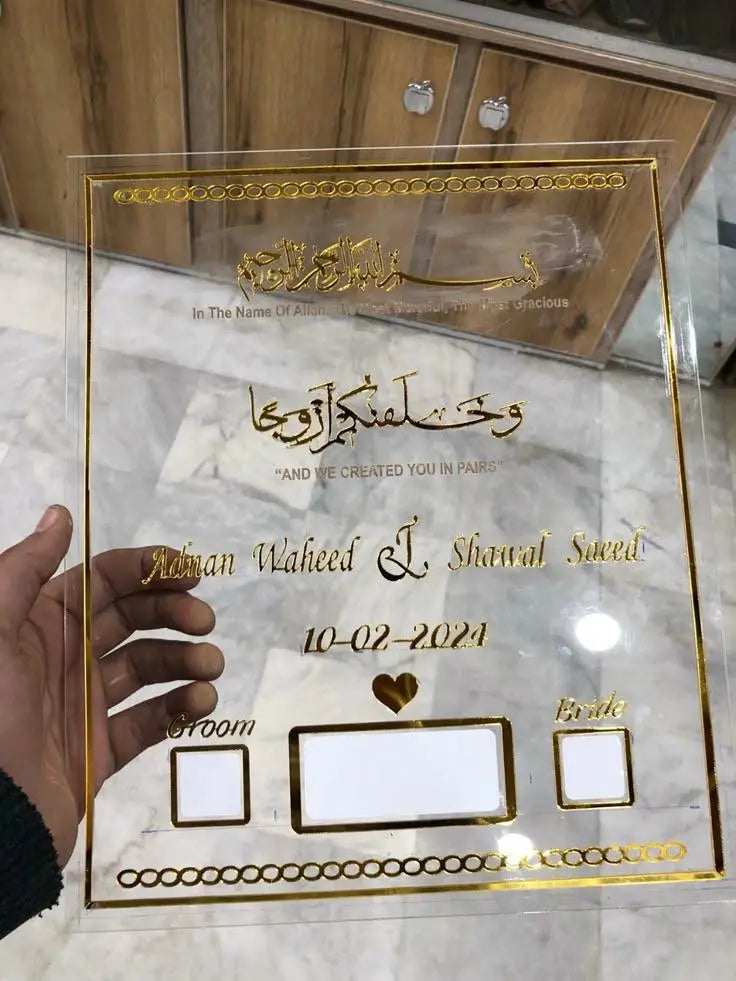 بسم الله الرحمن الرحيم
In The Name Of Allah, The Most Merciful, The Most Gracious
وخلقنكم أزوجا
"AND WE CREATED YOU IN PAIRS"
Adnan Waheed & Shawal Saeed
10-02-2024
Groom
Bride